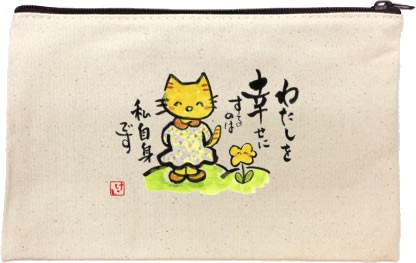 わたしを
幸せに
するのは
私自身
です